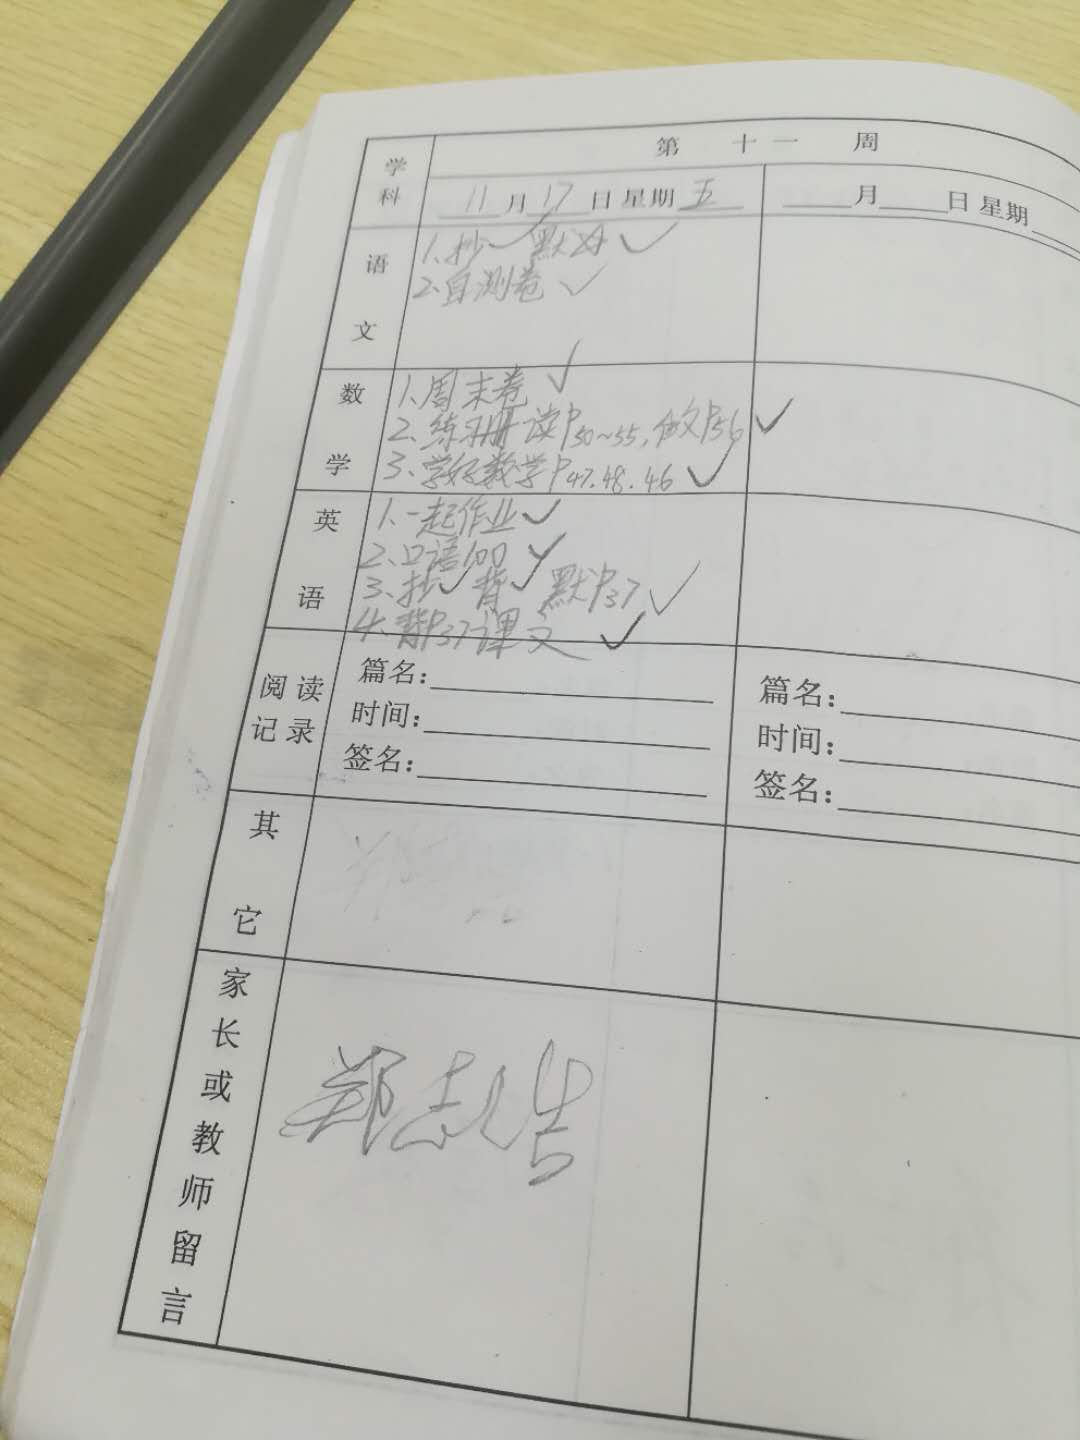 学科
第 十一 周
11月17日 星期五
月 日 星期
语文
1.抄✓ 默 ✓
2.自测卷 ✓
数学
1.周末卷 ✓
2.练习册 读P50~55,做P56 ✓
3.学好数学P47.48.46 ✓
英语
1.一起作业 ✓
2.口语100 ✓
3.抄✓ 背✓ 默P37 ✓
4.背P37课文 ✓
阅读记录
篇名:
时间:
签名:
篇名:
时间:
签名:
其它
家长或教师留言
郑志